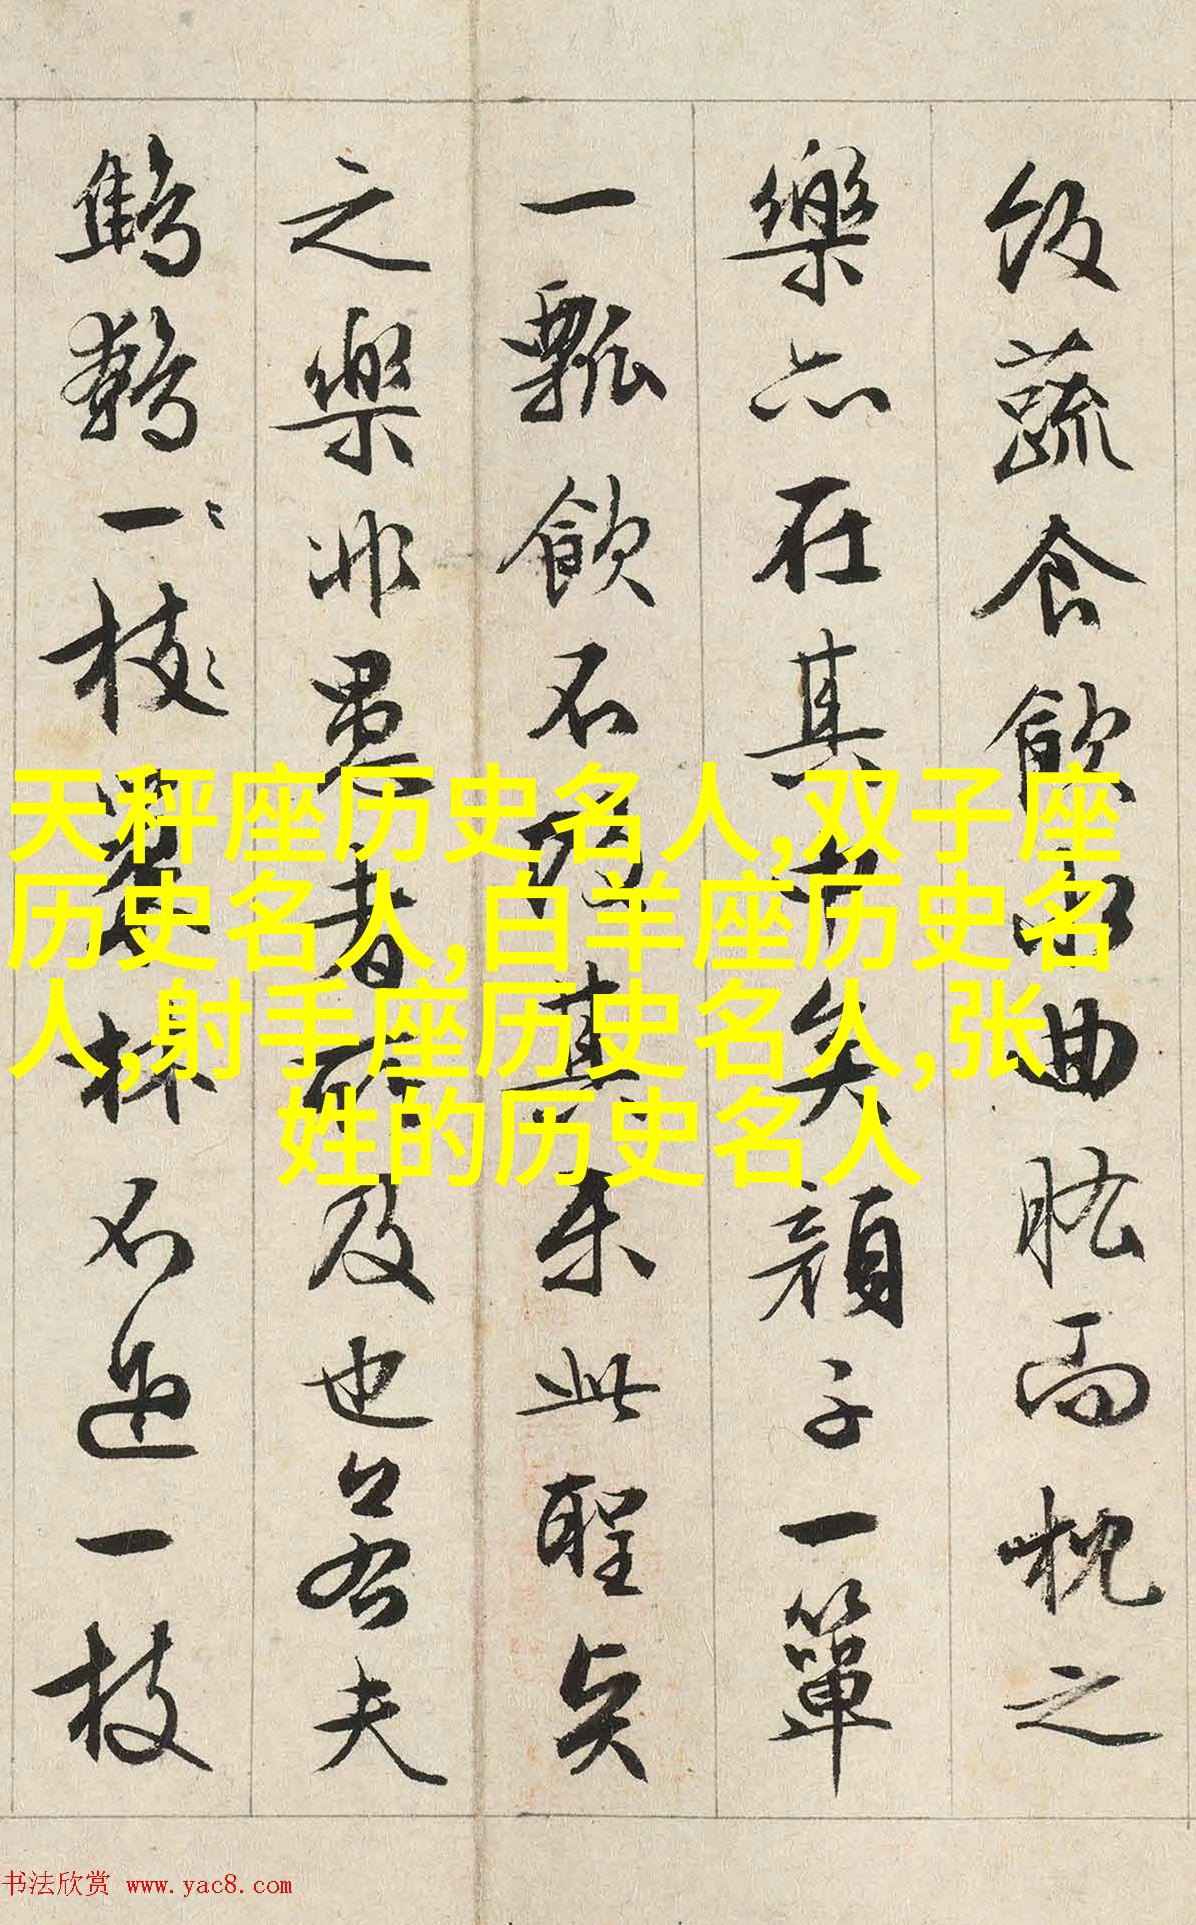 飯蔬食飲水曲肱而枕之
樂亦在其中矣顏子一簞
一瓢飲不改其樂此聖賢
之樂非愚者所及也若夫
鷦鷯一枝巢林不過一枝
天秤座历史名人,双子座
历史名人,白羊座历史名
人,射手座历史名人,张
姓的历史名人
书法欣赏 www.yac8.com